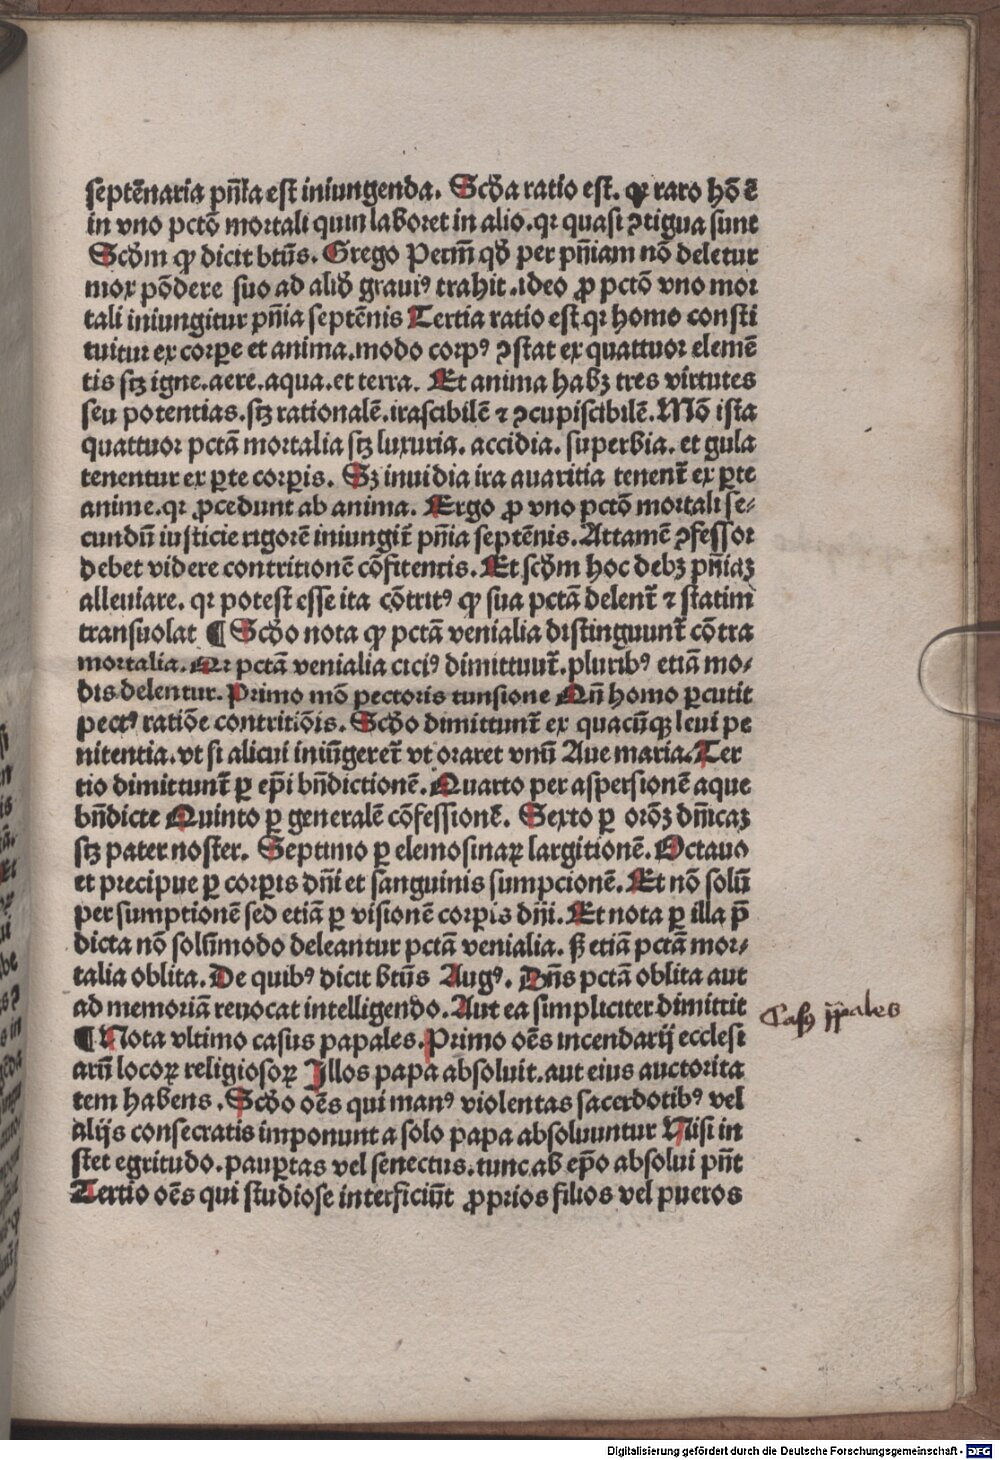 septēnaria pn̄ia est iniungenda. Scḋa ratio est. ꝙ raro hō ē
in vno pctō mortali quin laboret in alio. qꝛ quasi ꝯtigua sunt
Scḋm ꝙ dicit btūs. Grego Pctm̄ qḋ per pn̄iam nō deletur
mox pōdere suo ad aliḋ grauiꝰ trahit. ideo ꝓ pctō vno moꝛ
tali iniungitur pn̄ia septēnis Tertia ratio est qꝛ homo consti
tuitur ex coꝛꝑe et anima. modo coꝛpꝰ ꝯstat ex quattuoꝛ elemē
tis sꝫ igne. aere. aqua. et terra. Et anima habꝫ tres virtutes
seu potentias. sꝫ rationalē. irascibilē ⁊ ꝯcupiscibilē. Mō ista
quattuoꝛ pctā moꝛtalia sꝫ luxuria. accidia. superbia. et gula
tenentur ex ꝑte coꝛꝑis. Sꝫ inuidia ira auaritia tenent̄ ex ꝑte
anime. qꝛ ꝓcedunt ab anima. Ergo ꝓ vno pctō moꝛtali se⸗
cundū iusticie rigoꝛē iniungit̄ pn̄ia septēnis. Attamē ꝯfessoꝛ
debet videre contritionē cōfitentis. Et scḋm hoc debꝫ pn̄iaꝫ
alleuiare. qꝛ potest esse ita cōtritꝰ ꝙ sua pctā delent̄ ⁊ statim
transuolat ¶ Scḋo nota ꝙ pctā venialia distinguunt̄ cōtra
moꝛtalia. Qꝛ pctā venialia citiꝰ dimittuut̄. pluribꝰ etiā mo⸗
dis delentur. Primo mō pectoris tunsione Qn̄ homo ꝑcutit
pectꝰ ratiōe contritiōis. Scḋo dimittunt̄ ex quacūqꝫ leui pe
nitentia. vt si alicui iniūgeret̄ vt oꝛaret vnū Aue maria. Ter
tio dimittunt̄ ꝑ ep̄i bn̄dictionē. Quarto per aspersionē aque
bn̄dicte Quinto ꝑ generalē cōfessionē. Sexto ꝑ oꝛōꝫ dn̄icaꝫ
sꝫ pater noster. Septimo ꝑ elemosinaꝝ largitionē. Octauo
et precipue ꝑ coꝛꝑis dn̄i et sanguinis sumpcionē. Et nō solū
per sumptionē sed etiā ꝑ visionē coꝛꝑis dn̄i. Et nota ꝑ illa p̄
dicta nō solūmodo deleantur pctā venialia. sꝫ etiā pctā moꝛ⸗
talia oblita. De quibꝰ dicit btūs Augꝰ. Dn̄s pctā oblita aut
ad memoꝛiā reuocat intelligendo. Aut ea simpliciter dimittit
Casꝰ pp̄ales
¶ Nota vltimo casus papales. Primo oēs incendarij ecclesi
arū locoꝝ religiosoꝝ Illos papa absoluit. aut eius auctoꝛita
tem habens. Scḋo oēs qui manꝰ violentas sacerdotibꝰ vel
alijs consecratis imponunt a solo papa absoluuntur Nisi in
stet egritudo. pauꝑtas vel senectus. tunc ab ep̄o absolui pn̄t
Tertio oēs qui studiose interficiūt ꝓpꝛios filios vel pueros